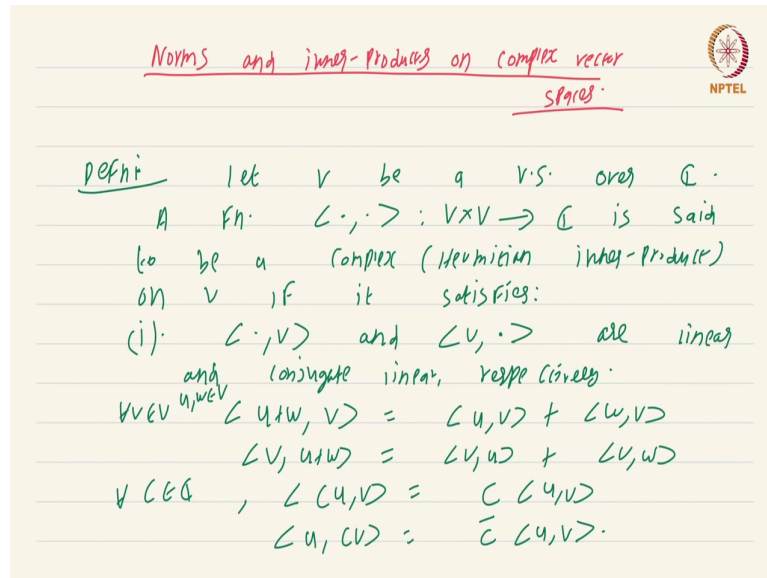 Norms and inner-products on complex vector
spaces.
NPTEL
Defn: Let V be a V.S. over ℂ.
A Fn. <·,·> : V×V → ℂ is said
to be a complex (Hermitian inner-product)
on V if it satisfies:
(i). <·,V> and <V,·> are linear
and conjugate linear, respectively.
∀V∈V u,w∈V <u+w, V> = <u,V> + <w,V>
<V, u+w> = <V,u> + <V,w>
∀ C∈ℂ, <Cu,V> = C <u,V>
<u, CV> = C̄ <u,V>.